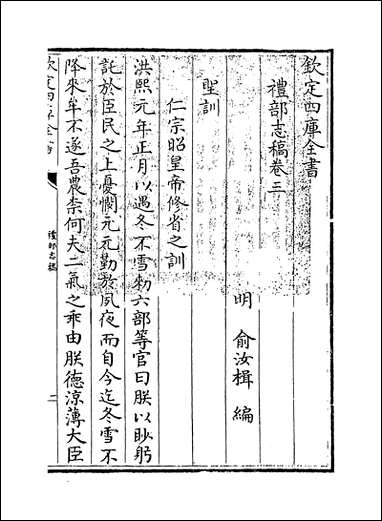 欽定四庫全書
禮部志稿卷三
明 俞汝楫 編
聖訓
仁宗昭皇帝修省之訓
洪熙元年正月以遇冬不雪勑六部等官曰朕以眇躬
託於臣民之上憂憫元元勤於夙夜而自今迄冬雪不
降來牟不遂吾農柰何夫二氣之乖由朕德涼薄大臣
禮部志稿